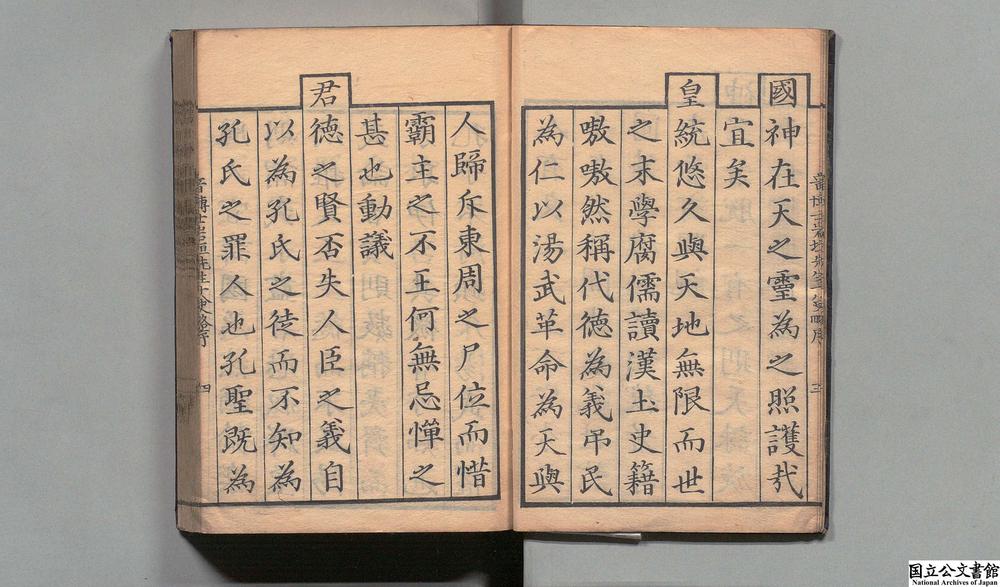 國神在天之靈為之照護哉
宜矣
皇統悠久與天地無限而世
之末學腐儒讀漢土史籍
嗷嗷然稱代德為義弔民
為仁以湯武革命為天與
三
人歸斥東周之尸位而惜
霸主之不王何無忌憚之
甚也動議
君德之賢否失人臣之義自
以為孔氏之徒而不知為
孔氏之罪人也孔聖既為
四
国立公文書館
National Archives of Japan